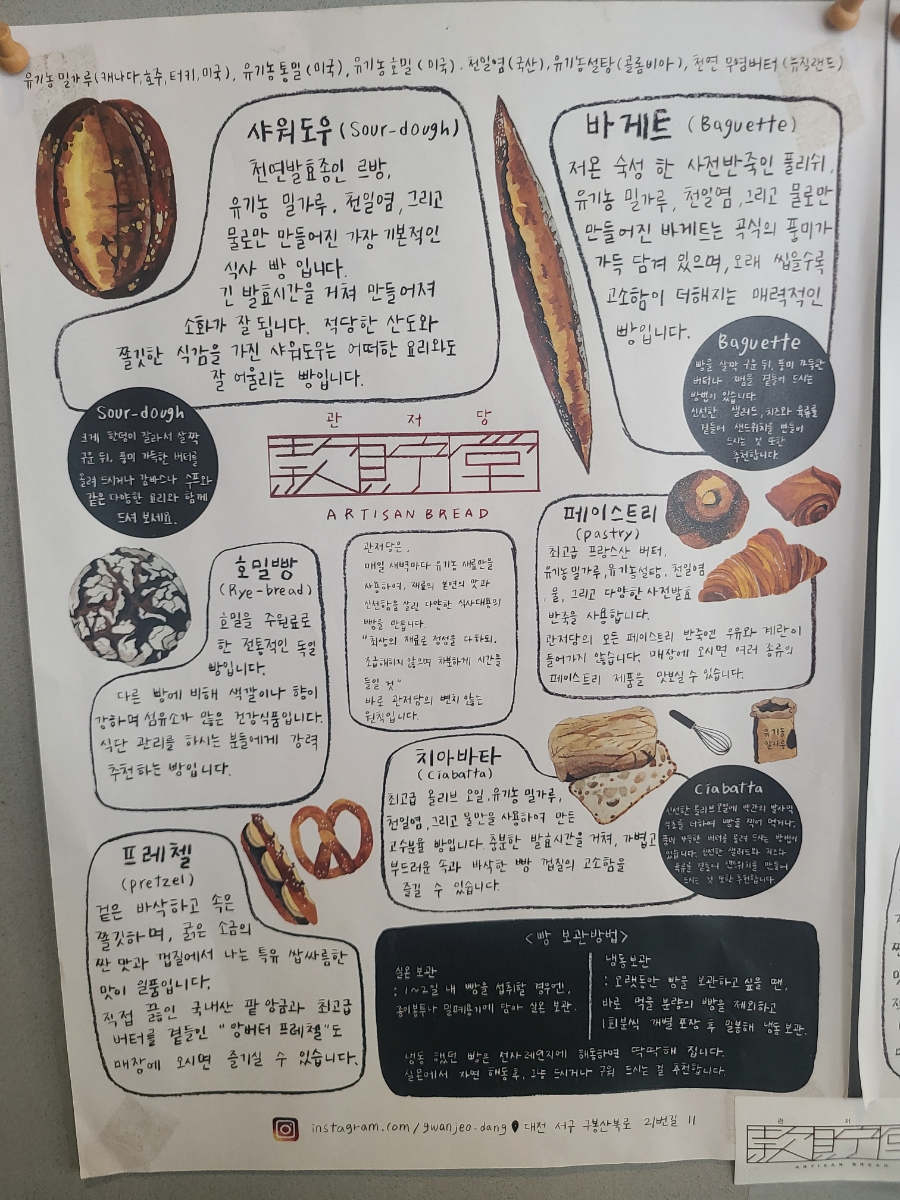 유기농 밀가루(캐나다,호주,터키,미국), 유기농통밀(미국), 유기농호밀(미국). 천일염(국산), 유기농설탕(콜롬비아), 천연 무염버터(뉴질랜드)
샤워도우(Sour-dough)
천연발효종인 르방,
유기농 밀가루, 천일염, 그리고
물로만 만들어진 가장 기본적인
식사 빵 입니다.
긴 발효시간을 거쳐 만들어져
소화가 잘 됩니다. 적당한 산도와
쫄깃한 식감을 가진 샤워도우는 어떠한 요리와도
잘 어울리는 빵입니다.
Sour-dough
크게 한덩이 잘라서 살짝
구운 뒤, 풍미 가득한 버터를
올려 드시거나 감바스나 수프와
같은 다양한 요리와 함께
드셔 보세요.
바게트 (Baguette)
저온 숙성 한 사전반죽인 풀리쉬,
유기농 밀가루, 천일염, 그리고 물로만
만들어진 바게트는 곡식의 풍미가
가득 담겨 있으며, 오래 씹을수록
고소함이 더해지는 매력적인
빵입니다.
Baguette
빵을 살짝 구운 뒤, 풍미 가득한
버터나 잼을 곁들여 드시는
방법이 있습니다.
신선한 샐러드, 치즈와 육류를
곁들여 샌드위치를 만들어
드시는 것 또한
추천합니다.
관 저 당
款貯堂
ARTISAN BREAD
호밀빵
(Rye-bread)
호밀을 주원료로
한 전통적인 독일
빵입니다.
다른 빵에 비해 색깔이나 향이
강하며 섬유소가 많은 건강식품입니다.
식단 관리를 하시는 분들에게 강력
추천하는 빵입니다.
관저당은,
매일 새벽마다 유기농 재료만을
사용하여, 재료의 본연의 맛과
신선함을 살린 다양한 식사대용의
빵을 만듭니다.
"최상의 재료로 정성을 다하되,
조급해하지 않으며 차분하게 시간을
들일 것"
바로 관저당의 변치 않는
원칙입니다.
페이스트리
(pastry)
최고급 프랑스산 버터,
유기농밀가루, 유기농설탕, 천일염
,물, 그리고 다양한 사전발효
반죽을 사용합니다.
관저당의 모든 페이스트리 반죽엔 우유와 계란이
들어가지 않습니다. 매장에 오시면 여러 종류의
페이스트리 제품을 맛보실 수 있습니다.
유기농
밀가루
치아바타
(Ciabatta)
최고급 올리브 오일, 유기농 밀가루,
천일염, 그리고 물만을 사용하여 만든
고수분율 빵입니다. 충분한 발효시간을 거쳐, 가볍고
부드러운 속과 바삭한 빵 껍질의 고소함을
즐길 수 있습니다.
Ciabatta
신선한 올리브오일에 약간의 발사믹
식초를 더하여 빵을 찍어 먹거나,
풍미 가득한 버터를 올려 드시는 방법이
있습니다. 신선한 샐러드와 치즈와
육류를 곁들여 샌드위치를 만들어
드시는 것 또한 추천합니다.
프레첼
(pretzel)
겉은 바삭하고 속은
쫄깃하며, 굵은 소금의
짠 맛과 껍질에서 나는 특유 쌉싸름한
맛이 일품입니다.
직접 끓인 국내산 팥 앙금과 최고급
버터를 곁들인 "앙버터 프레첼"도
매장에 오시면 즐기실 수 있습니다.
<빵 보관방법>
실온 보관
: 1~2일 내 빵을 섭취할 경우엔,
종이봉투나 밀폐용기에 담아 실온 보관.
냉동 보관
: 오랫동안 빵을 보관하고 싶을 땐,
바로 먹을 분량의 빵을 제외하고
1회분씩 개별 포장 후 밀봉해 냉동 보관.
냉동 했던 빵은 전자레인지에 해동하면 딱딱해 집니다.
실온에서 자연 해동후, 그냥 드시거나 구워 드시는 걸 추천합니다.
instagram.com/gwanjeo-dang 대전 서구 구봉산북로 21번길 11
관 저
款貯
ARTISAN BREAD